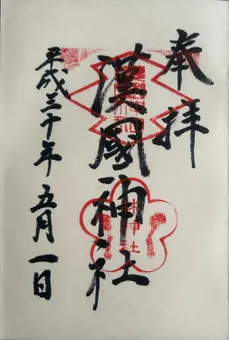 奉拝
漢國神社
平成三十年五月一日